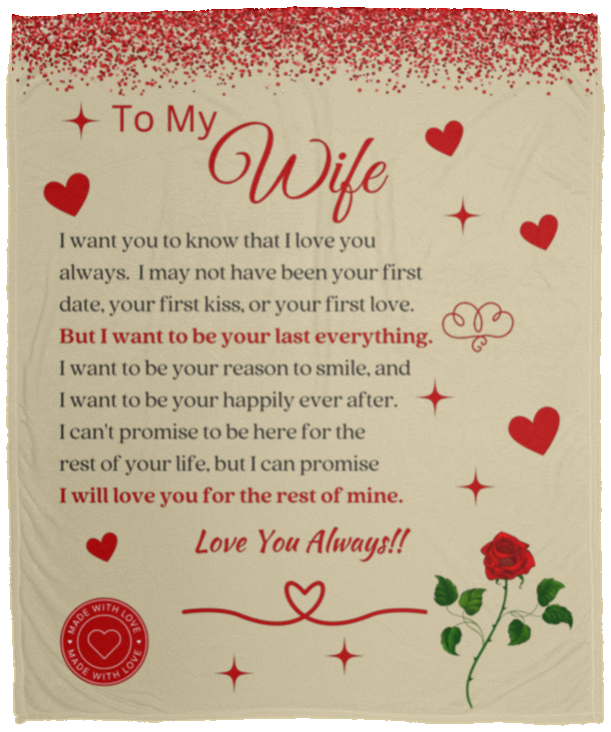 To My
Wife
I want you to know that I love you
always. I may not have been your first
date, your first kiss, or your first love.
But I want to be your last everything.
I want to be your reason to smile, and
I want to be your happily ever after.
I can't promise to be here for the
rest of your life, but I can promise
I will love you for the rest of mine.
Love You Always!!
MADE WITH LOVE
MADE WITH LOVE